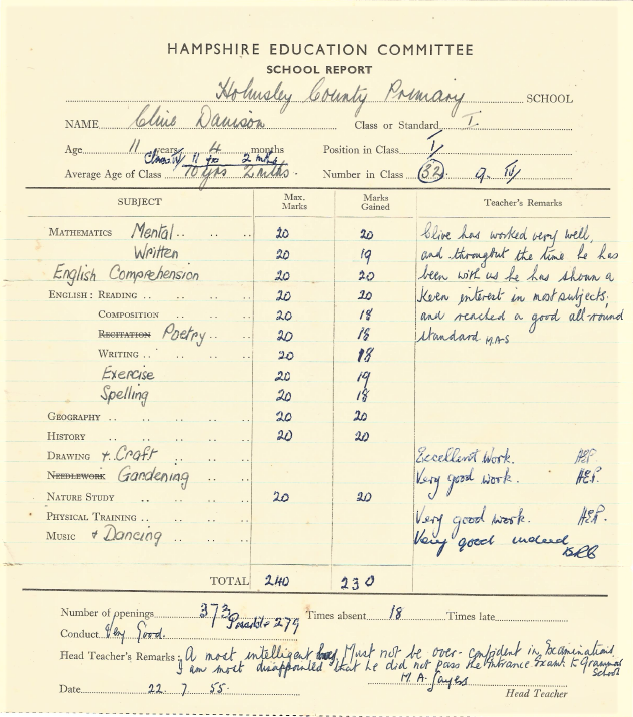 HAMPSHIRE EDUCATION COMMITTEE
SCHOOL REPORT
Holmsley County Primary SCHOOL
NAME Clive Davison Class or Standard I
Age 11 years 4 months Position in Class I
Class IV 11 yrs 2 mths
Average Age of Class 10 yrs 2 mths. Number in Class 32. 9. IV
SUBJECT Max. Marks Marks Gained Teacher's Remarks
MATHEMATICS Mental 20 20 Clive has worked very well,
Written 20 19 and throughout the time he has
English Comprehension 20 20 been with us he has shown a
ENGLISH: READING 20 20 keen interest in most subjects,
COMPOSITION 20 18 and reached a good all-round
RECITATION Poetry 20 18 standard MAS
WRITING 20 18
Exercise 20 19
Spelling 20 18
GEOGRAPHY 20 20
HISTORY 20 20
DRAWING + Craft Excellent work. HEP
NEEDLEWORK Gardening Very good work. HEP.
NATURE STUDY 20 20
PHYSICAL TRAINING Very good work. HEP.
MUSIC + Dancing Very good indeed
TOTAL 240 230
Number of openings 373 Possible 279 Times absent 18 Times late
Conduct Very Good.
Head Teacher's Remarks: A most intelligent boy. Must not be over-confident in Examinations.
I am most disappointed that he did not pass the entrance exam. to Grammar School
M. A. Sayers
Date 22. 7 55. Head Teacher